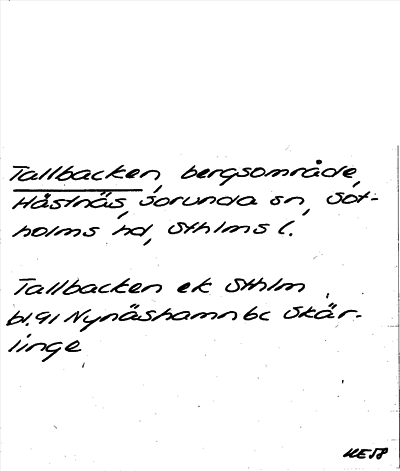 Tallbacken, bergsområde,
Håstnäs, Sorunda sn, Sot-
holms hd, Sthlms l.
Tallbacken ek Sthlm
bl. 91 Nynäshamn bc Skär-
linge
HE58